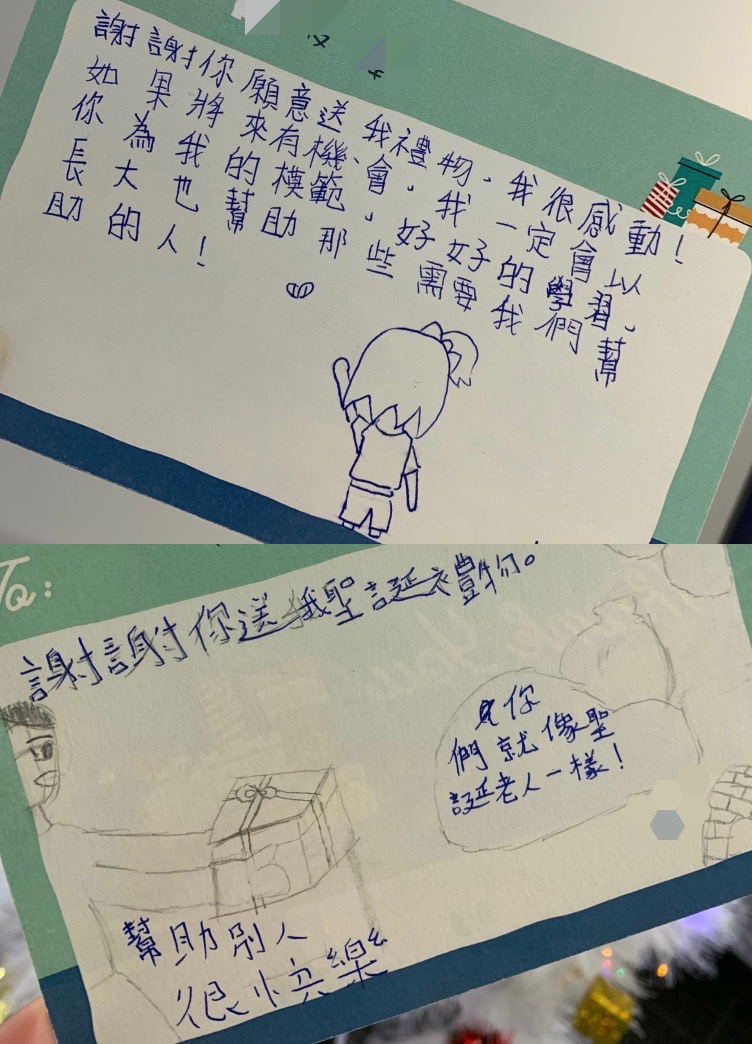 謝謝你願意送我禮物,我很感動!
如果將來有機、會,我一定會以
你為我的模範,好好的學習,
長大也幫助那些需要我們幫
助的人!
To:
謝謝你送我聖誕禮物。
你
們就像聖
誕老人一樣!
幫助別人
很快樂